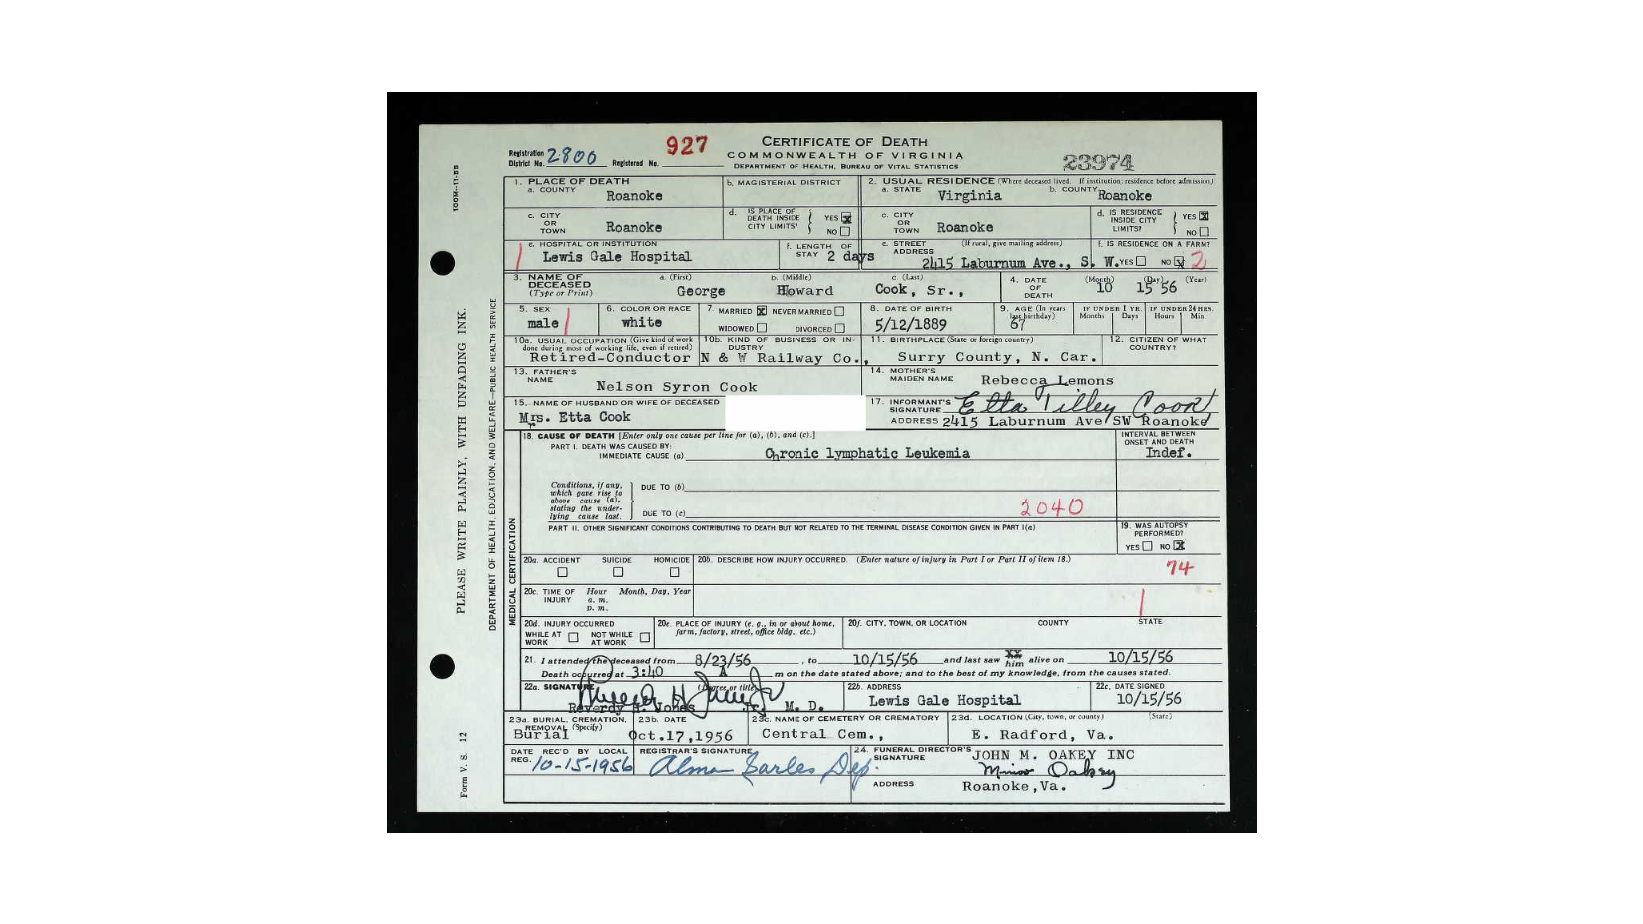 Registration District No. 2800 Registered No. 927
CERTIFICATE OF DEATH
COMMONWEALTH OF VIRGINIA
DEPARTMENT OF HEALTH, BUREAU OF VITAL STATISTICS
23974
100M—11-55
PLEASE WRITE PLAINLY, WITH UNFADING INK.
DEPARTMENT OF HEALTH, EDUCATION, AND WELFARE—PUBLIC HEALTH SERVICE
Form V. S. 12
1. PLACE OF DEATH
a. COUNTY Roanoke
b. MAGISTERIAL DISTRICT
2. USUAL RESIDENCE (Where deceased lived. If institution: residence before admission)
a. STATE Virginia b. COUNTY Roanoke
c. CITY OR TOWN Roanoke
d. IS PLACE OF DEATH INSIDE CITY LIMITS? YES X NO
c. CITY OR TOWN Roanoke
d. IS RESIDENCE INSIDE CITY LIMITS? YES X NO
e. HOSPITAL OR INSTITUTION Lewis Gale Hospital
f. LENGTH OF STAY 2 days
e. STREET ADDRESS (If rural, give mailing address) 2415 Laburnum Ave., S. W.
f. IS RESIDENCE ON A FARM? YES NO X 2
3. NAME OF DECEASED (Type or Print)
a. (First) George b. (Middle) Howard c. (Last) Cook, Sr.,
4. DATE OF DEATH (Month) 10 (Day) 15 (Year) 56
5. SEX male
6. COLOR OR RACE white
7. MARRIED X NEVER MARRIED WIDOWED DIVORCED
8. DATE OF BIRTH 5/12/1889
9. AGE (In years last birthday) 67
IF UNDER 1 YR. Months Days
IF UNDER 24 HRS. Hours Min.
10a. USUAL OCCUPATION (Give kind of work done during most of working life, even if retired) Retired-Conductor
10b. KIND OF BUSINESS OR INDUSTRY N & W Railway Co.,
11. BIRTHPLACE (State or foreign country) Surry County, N. Car.
12. CITIZEN OF WHAT COUNTRY?
13. FATHER'S NAME Nelson Syron Cook
14. MOTHER'S MAIDEN NAME Rebecca Lemons
15. NAME OF HUSBAND OR WIFE OF DECEASED Mrs. Etta Cook
17. INFORMANT'S SIGNATURE Etta Tilley Cook
ADDRESS 2415 Laburnum Ave SW Roanoke
MEDICAL CERTIFICATION
18. CAUSE OF DEATH [Enter only one cause per line for (a), (b), and (c).]
PART I. DEATH WAS CAUSED BY:
IMMEDIATE CAUSE (a) Chronic lymphatic Leukemia
INTERVAL BETWEEN ONSET AND DEATH Indef.
Conditions, if any, which gave rise to above cause (a), stating the underlying cause last.
DUE TO (b)
DUE TO (c) 2040
PART II. OTHER SIGNIFICANT CONDITIONS CONTRIBUTING TO DEATH BUT NOT RELATED TO THE TERMINAL DISEASE CONDITION GIVEN IN PART I(a)
19. WAS AUTOPSY PERFORMED? YES NO X
20a. ACCIDENT SUICIDE HOMICIDE
20b. DESCRIBE HOW INJURY OCCURRED. (Enter nature of injury in Part I or Part II of item 18.)
74
20c. TIME OF INJURY Hour a. m. p. m. Month, Day, Year
20d. INJURY OCCURRED WHILE AT WORK NOT WHILE AT WORK
20e. PLACE OF INJURY (e. g., in or about home, farm, factory, street, office bldg. etc.)
20f. CITY, TOWN, OR LOCATION COUNTY STATE
21. I attended the deceased from 8/23/56, to 10/15/56 and last saw xx him alive on 10/15/56
Death occurred at 3:40 A m on the date stated above; and to the best of my knowledge, from the causes stated.
22a. SIGNATURE (Degree or title) Reverdy H. Jones Jr. M. D.
22b. ADDRESS Lewis Gale Hospital
22c. DATE SIGNED 10/15/56
23a. BURIAL, CREMATION, REMOVAL (Specify) Burial
23b. DATE Oct.17,1956
23c. NAME OF CEMETERY OR CREMATORY Central Cem.,
23d. LOCATION (City, town, or county) (State) E. Radford, Va.
DATE REC'D BY LOCAL REG. 10-15-1956
REGISTRAR'S SIGNATURE Alma Sarles Dep.
24. FUNERAL DIRECTOR'S SIGNATURE JOHN M. OAKEY INC
Oakey
ADDRESS Roanoke,Va.